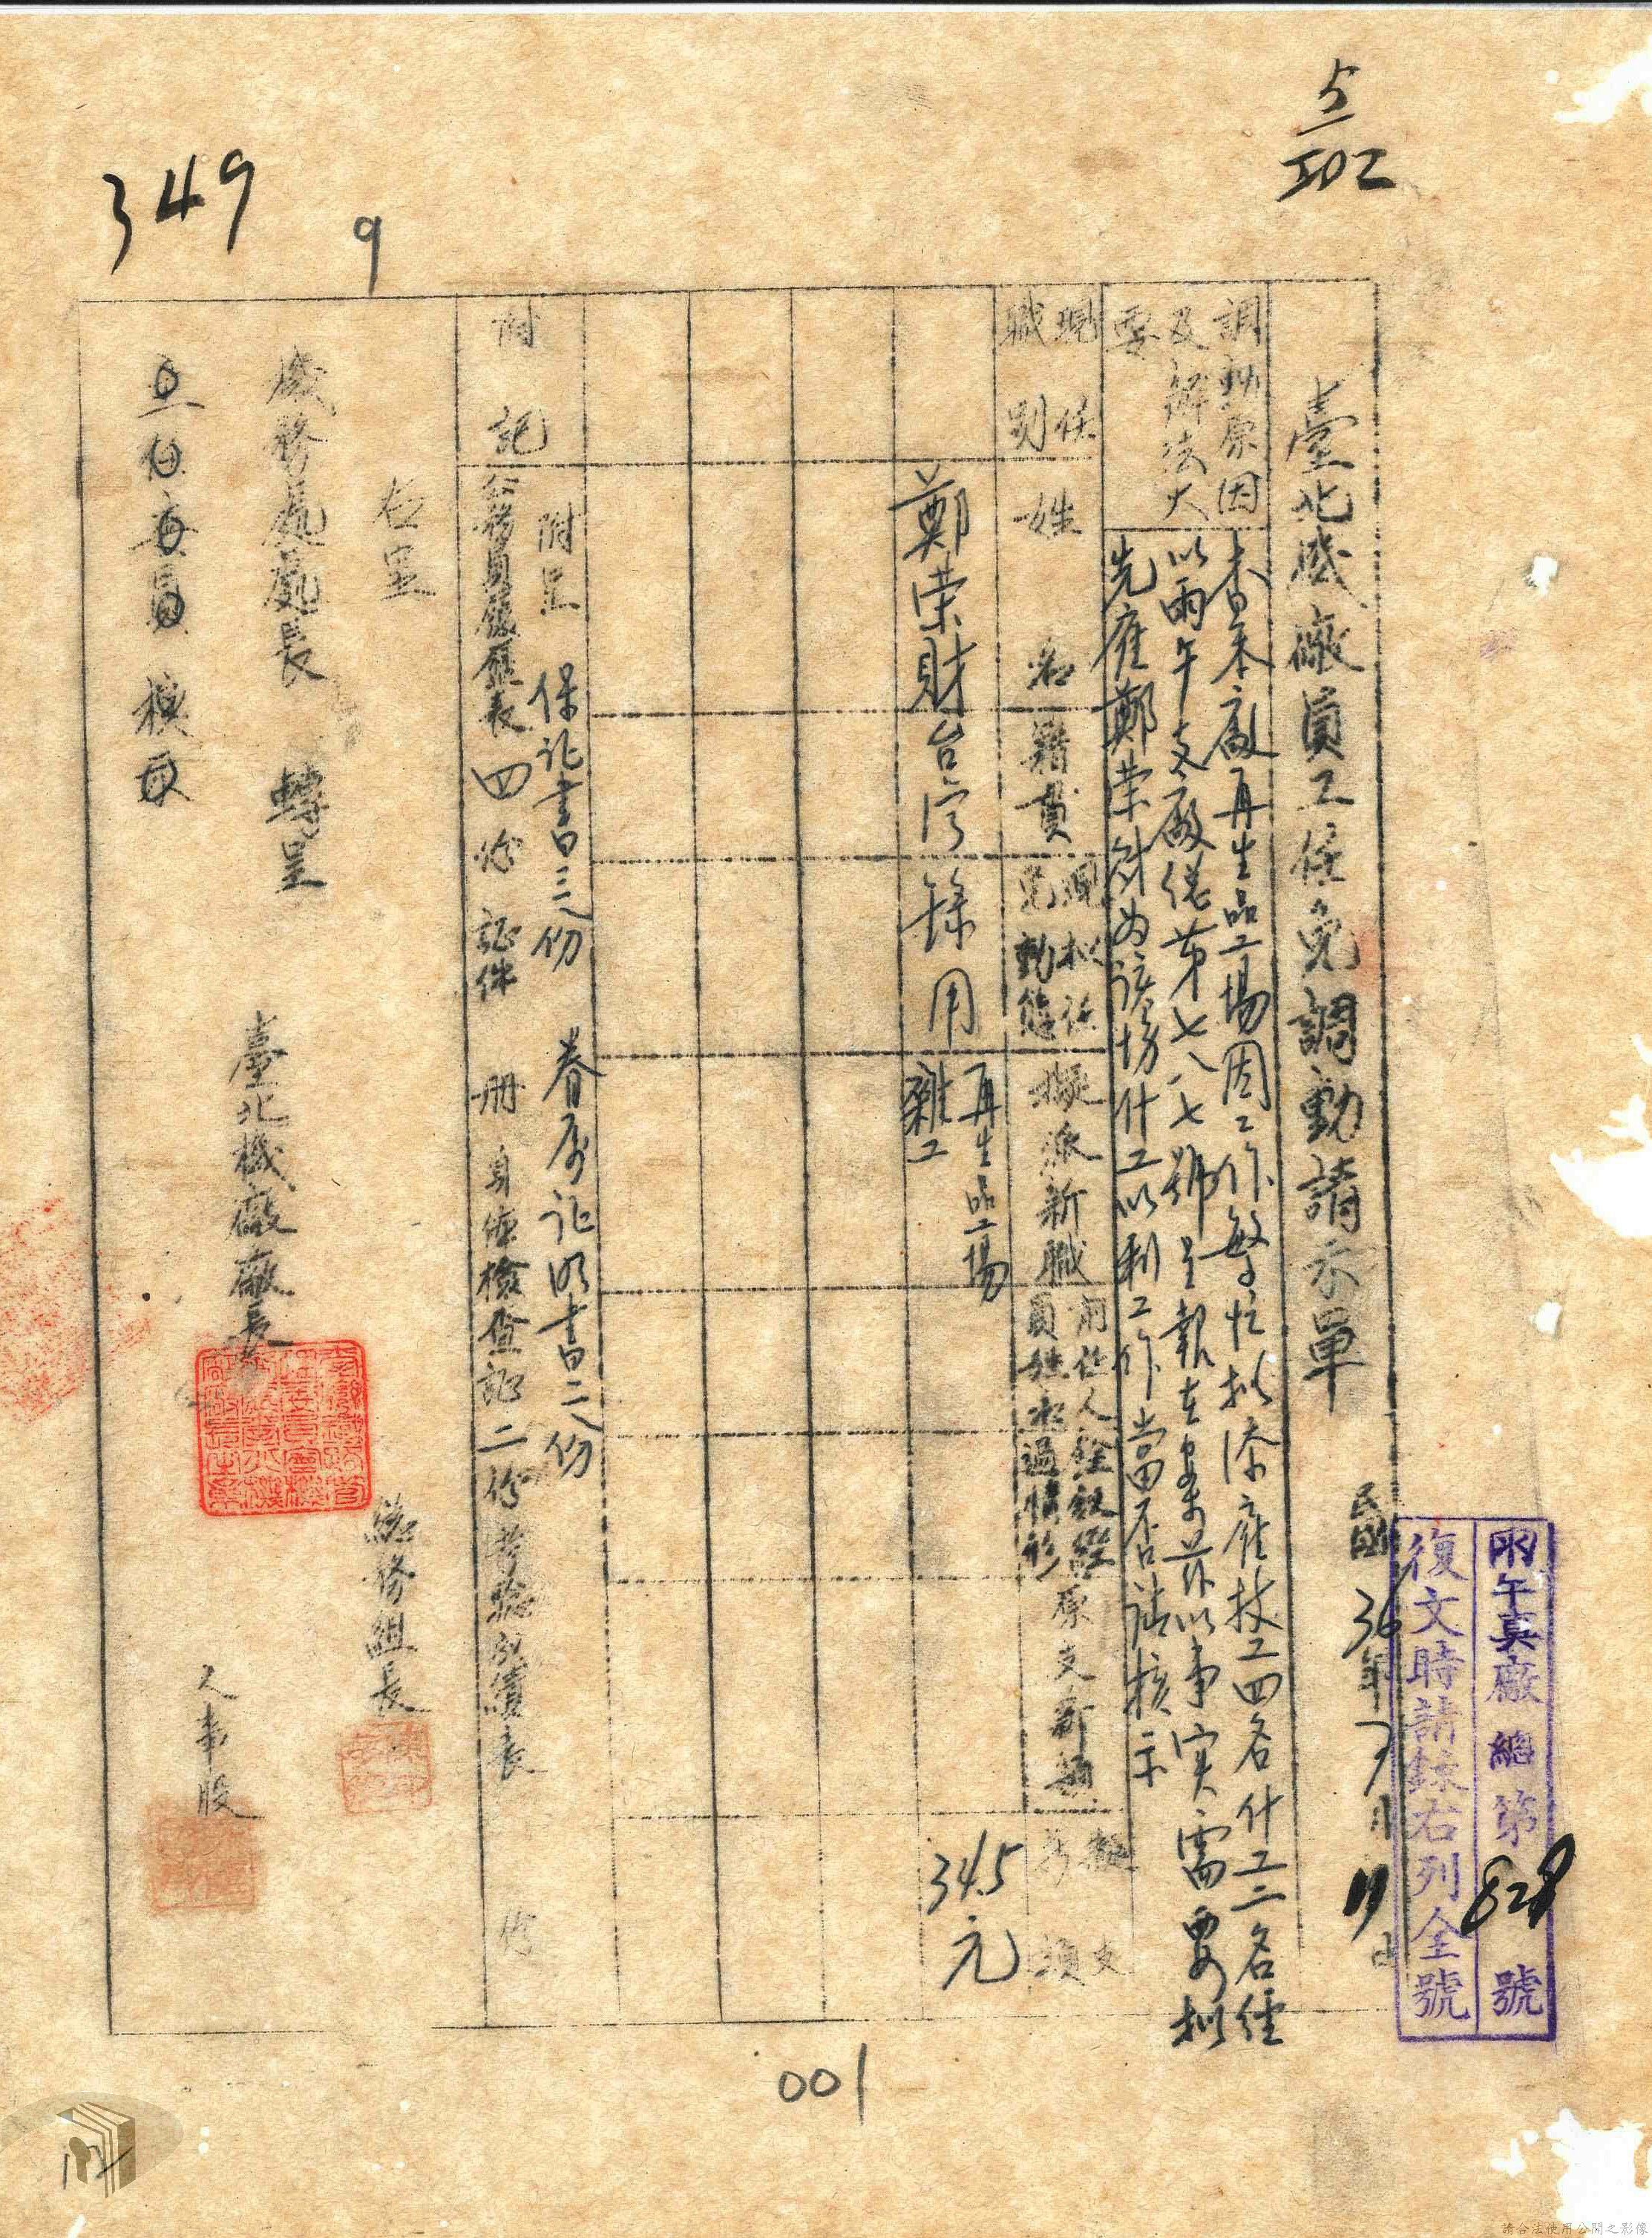 349
9
502
雨午真廠總第828號
復文時請錄右列全號
臺北機廠員工任免調動請示單
民國36年7月11日
調動原因及辦法大要
查本廠再生品工場因工作繁忙拟添雇技工四名什工二名經
以雨午支廠總第七八七號呈報在案茲以事实需要拟
先雇鄭荣財為該場什工以利工作當否請核示
現任職別
姓名
籍貫
現拟任免動態
擬派新職
前任人經敘經
原支薪額
擬支
鄭荣財
台湾
錄用
再生品工場
雜工
345元
附記
附呈 保証書三份 眷属証明書二份
公務員履歷表四份 証件 册 身体檢查証二份 考驗成績表 份
右呈
廠務處處長 轉呈
主任委員 核
臺北機廠廠長
總務組長
人事股
001
請合法使用公開之影像